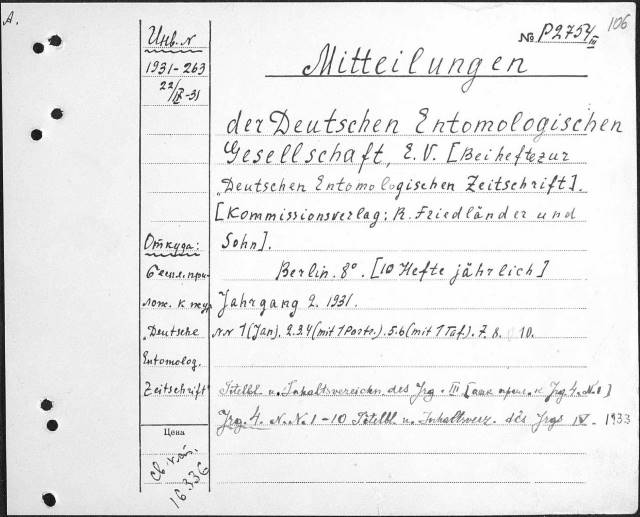 A.
106
№ P2754/III
Инв. N
1931-263
22/IX-31
Mitteilungen
der Deutschen Entomologischen
Gesellschaft, E.V. [Beihefte zur
"Deutschen Entomologischen Zeitschrift].
[Kommissionsverlag: R. Friedländer und
Sohn].
Откуда:
Беспл. при-
лож. к жур
"Deutsche
Entomolog.
Zeitschrift"
Berlin. 8°. [10 Hefte jährlich]
Jahrgang 2. 1931.
N.N 1 (Jan). 2.3.4 (mit 1 Portr.). 5.6 (mit 1 Taf.). 7. 8. 10.
Titelbl. u. Inhaltsverzeichn. des Jrg. III [как прил. к Jrg. 4. N. 1]
Jrg. 4. N.N. 1-10 Titelbl. u. Inhaltsverz. des Jrgs IV. - 1933
Цена
16.336